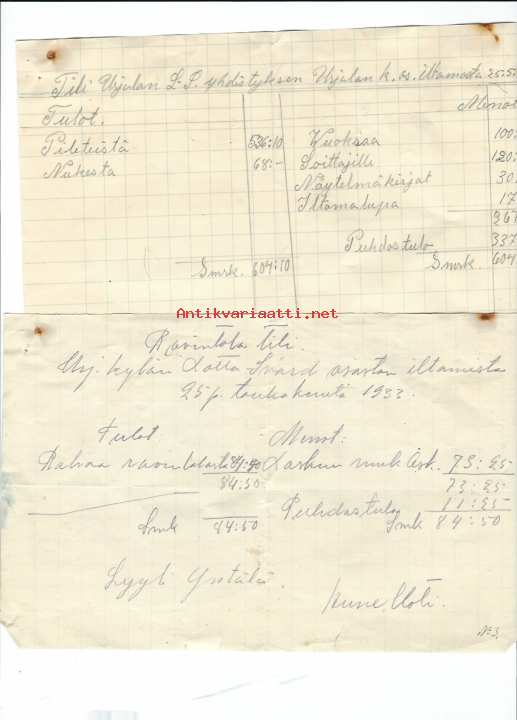 Tili Urjalan L-S. yhdistyksen Urjalan k. os. iltamasta 25.5
Tulot. Menot
Pileteistä 536:10 Vuokraa 100:
Nukesta 68:- Soittajille 120:
Näytelmäkirjat 30.
Iltamalupa 17
267
Puhdastulo 337
Smrk. 604:10 Smrk. 604
Antikvariaatti.net
Ravintola tili.
Urj. kylän Lotta Svärd osaston iltamista
25 p. toukokuuta 1933.
Tulot Menot:
Rahaa ravintolasta 84:50 Laskun muk. 73:25
84:50 73:25
Puhdastulo 11:25
Smk 84:50 Smk 84:50
Lyyli
No 3.